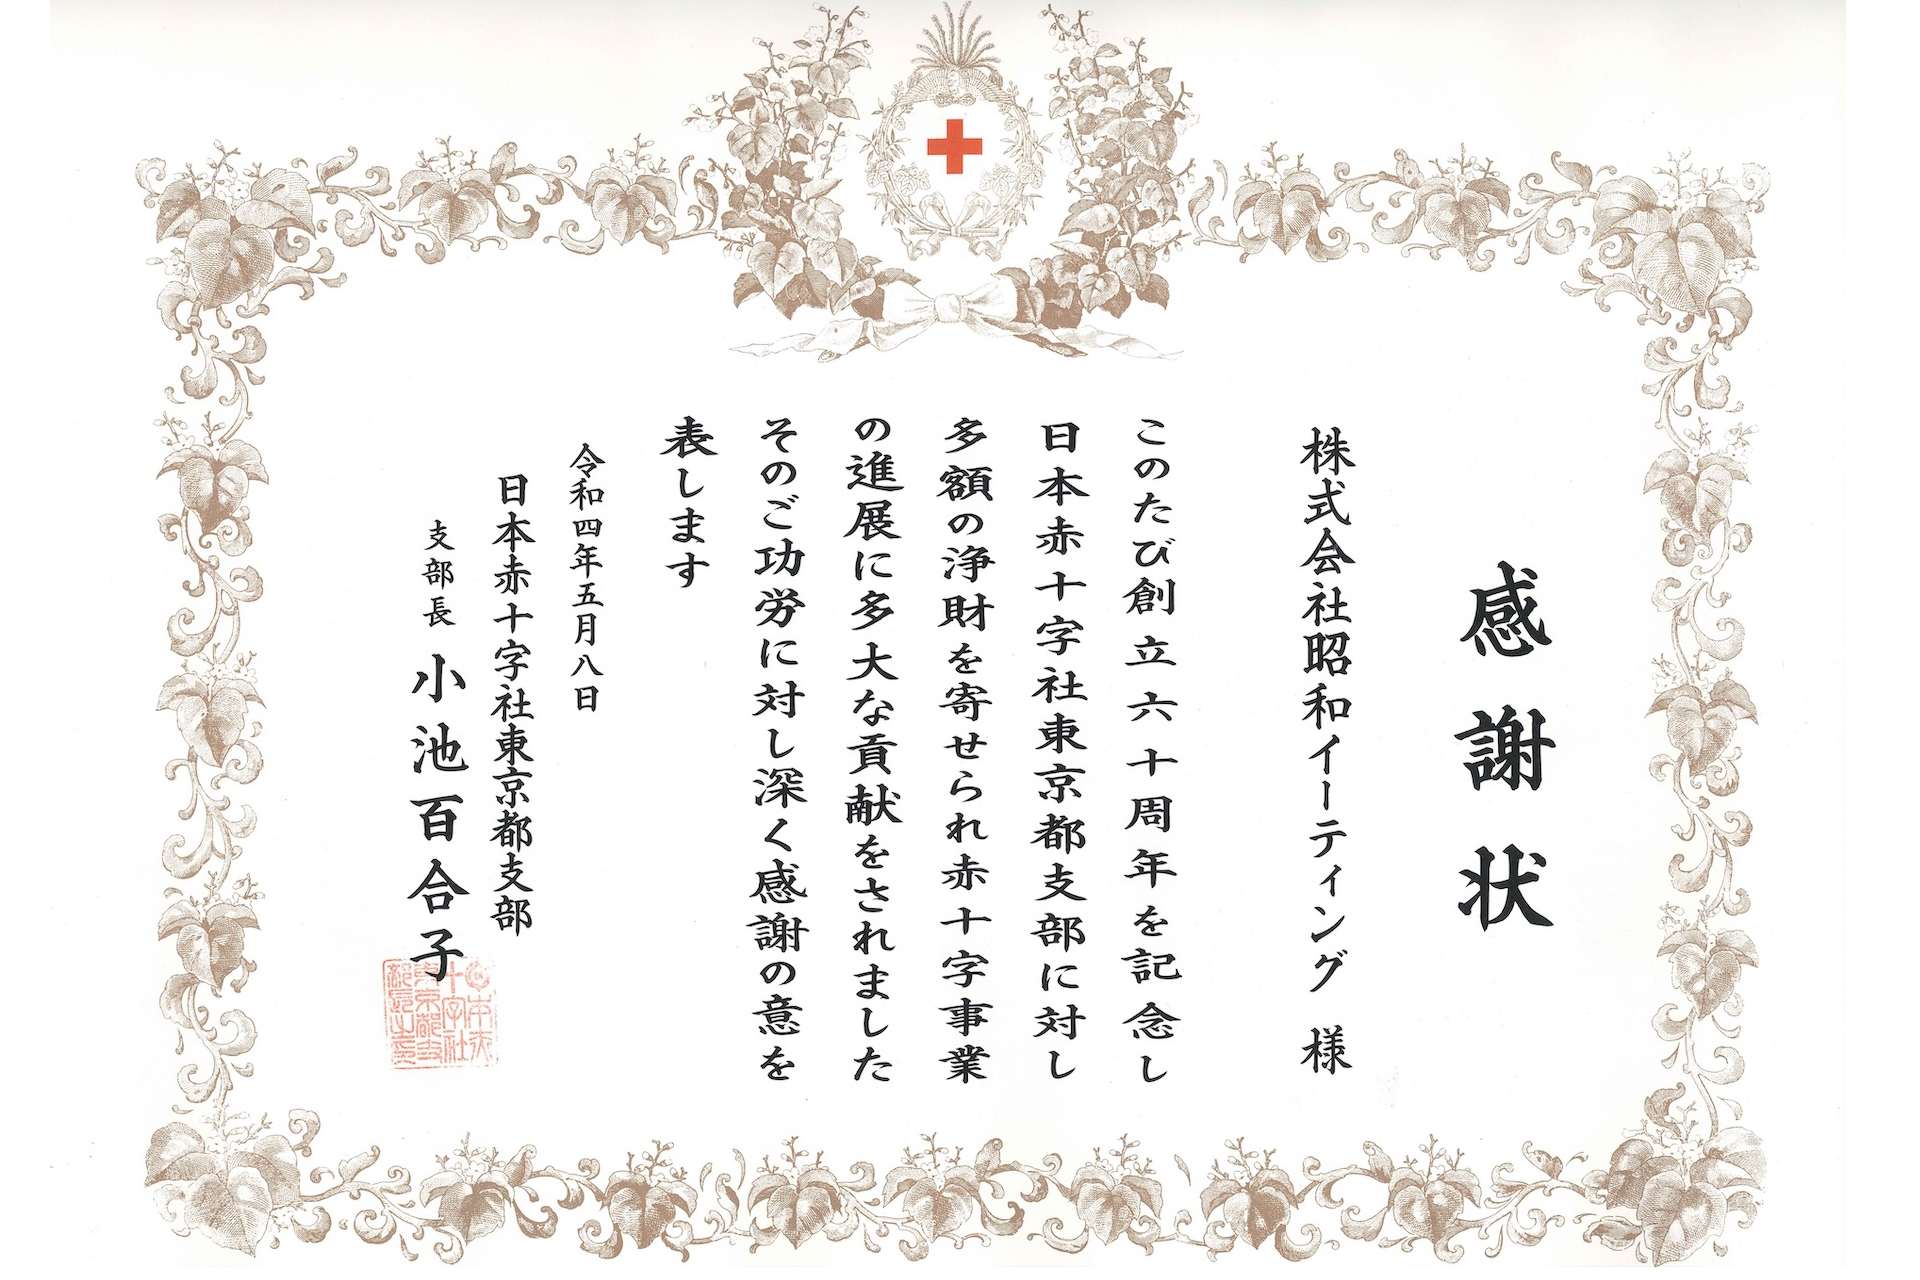 感謝状
株式会社昭和イーティング 様
このたび創立六十周年を記念し
日本赤十字社東京都支部に対し
多額の浄財を寄せられ赤十字事業
の進展に多大な貢献をされました
そのご功労に対し深く感謝の意を
表します
令和四年五月八日
日本赤十字社東京都支部
支部長 小池百合子
日本赤
十字社
東京都支
部長之印